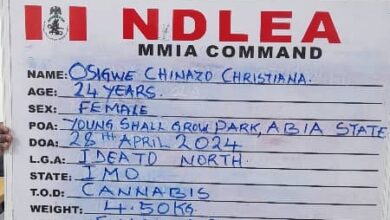 NDLEA
MMIA COMMAND
NAME: OSIGWE CHINAZO CHRISTIANA.
AGE: 24 YEARS.
SEX: FEMALE
POA: YOUNG SHALL GROW PARK, ABIA STATE
DOA: 28TH APRIL 2024
L.G.A: IDEATO NORTH.
STATE: IMO
T.O.D: CANNABIS
WEIGHT: 4.50KG